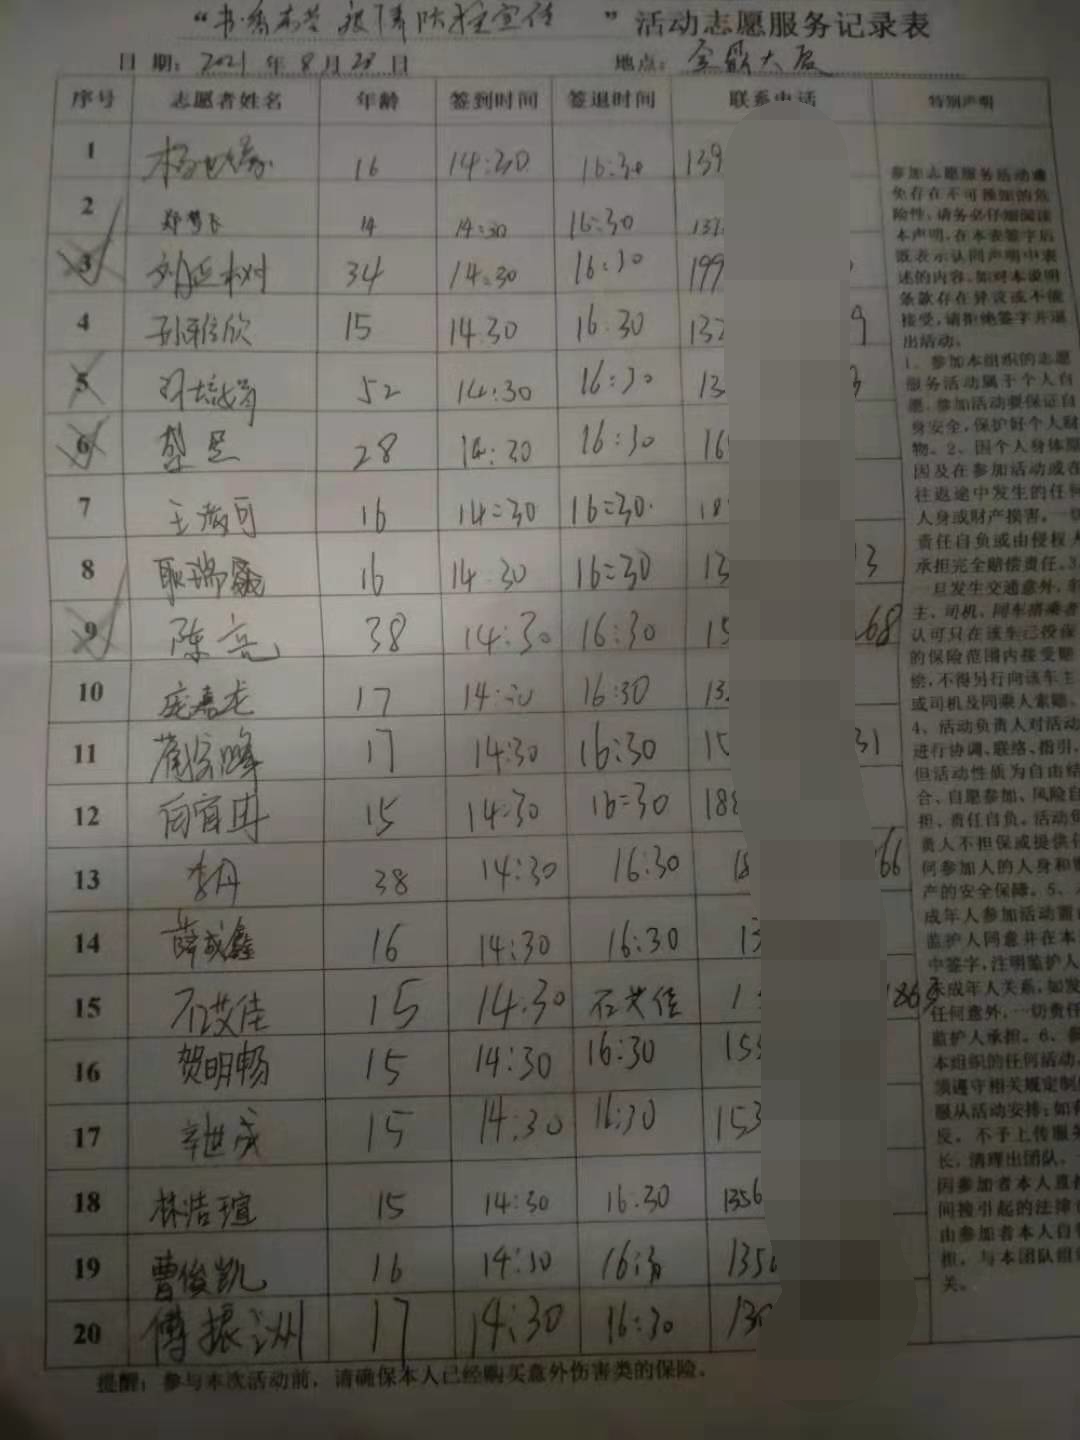 活动志愿服务记录表
日 期: 2021 年 8 月 28 日 地点: 金鼎大厦
序号 志愿者姓名 年龄 签到时间 签退时间 联系电话 特别声明
1 16 14:30 16:30 139
2 14 14:30 16:30 132
3 34 14:30 16:30 199
4 孙雅欣 15 14:30 16:30 132 9
5 52 14:30 16:30 13 3
6 28 14:30 16:30 16
7 16 14:30 16:30 18
8 耿瑞 16 14:30 16:30 13 3
9 陈亮 38 14:30 16:30 15 68
10 庞嘉龙 17 14:30 16:30 13
11 17 14:30 16:30 15 31
12 向宜冉 15 14:30 16:30 188
13 李丹 38 14:30 16:30 18 66
14 薛成鑫 16 14:30 16:30 13
15 石艾佳 15 14:30 石艾佳 1 186
16 贺明畅 15 14:30 16:30 155
17 辛世成 15 14:30 16:30 153
18 林浩瑄 15 14:30 16:30 1356
19 曹俊凯 16 14:30 16:30 1350
20 傅振洲 17 14:30 16:30 130
参加志愿服务活动难
免存在不可预知的危
险性,请务必仔细阅读
本声明,在本表签字后
既表示认同声明中表
述的内容,如对本说明
条款存在异议或不能
接受,请拒绝签字并退
出活动。
1、参加本组织的志愿
服务活动属于个人自
愿,参加活动要保证自
身安全,保护好个人财
物。2、因个人身体原
因及在参加活动或在
往返途中发生的任何
人身或财产损害,一切
责任自负或由侵权人
承担完全赔偿责任。3、
一旦发生交通意外,车
主、司机、同车搭乘者
认可只在该车已投保
的保险范围内接受赔
偿,不得另行向该车主
或司机及同乘人索赔。
4、活动负责人对活动
进行协调、联络、指引,
但活动性质为自由结
合、自愿参加、风险自
担、责任自负。活动负
责人不担保或提供任
何参加人的人身和财
产的安全保障。5、
成年人参加活动需
监护人同意并在本
中签字,注明监护人
未成年人关系,如发
任何意外,一切责任
监护人承担。6、参
本组织的任何活动,
须遵守相关规定制
服从活动安排;如
反,不予上传服务
长,清理出团队。
因参加者本人直接
间接引起的法律
由参加者本人自
担,与本团队组织
关。
提醒:参与本次活动前,请确保本人已经购买意外伤害类的保险。